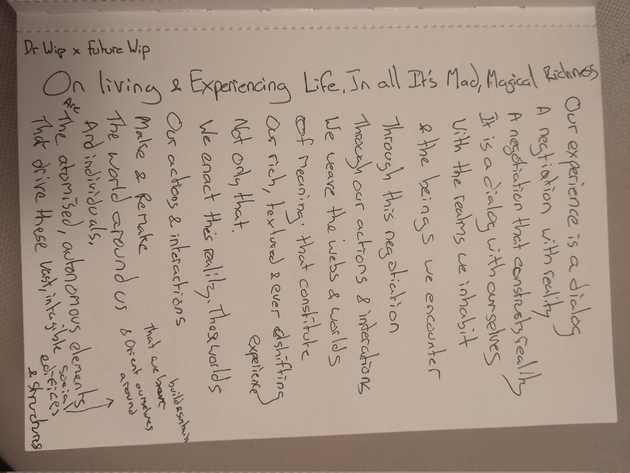 Dr Wip x Future Wip
On living & Experiencing Life, In all It's Mad, Magical Richness
Our experience is a dialog
A negotiation with reality
A negotiation that constructs reality
It is a dialog with ourselves
With the realms we inhabit
& the beings we encounter
Through this negotiation
Through our actions & interactions
We weave the webs & worlds
Of meaning that constitute
Our rich, textured & ever shifting experience
Not only that.
We enact this reality, These worlds
Our actions & interactions
Make & Remake
The world around us
And individuals,
Are The atomised, autonomous elements
That drive these vast, intangible social edifices & structures
That we build & sustain
& Orient ourselves around